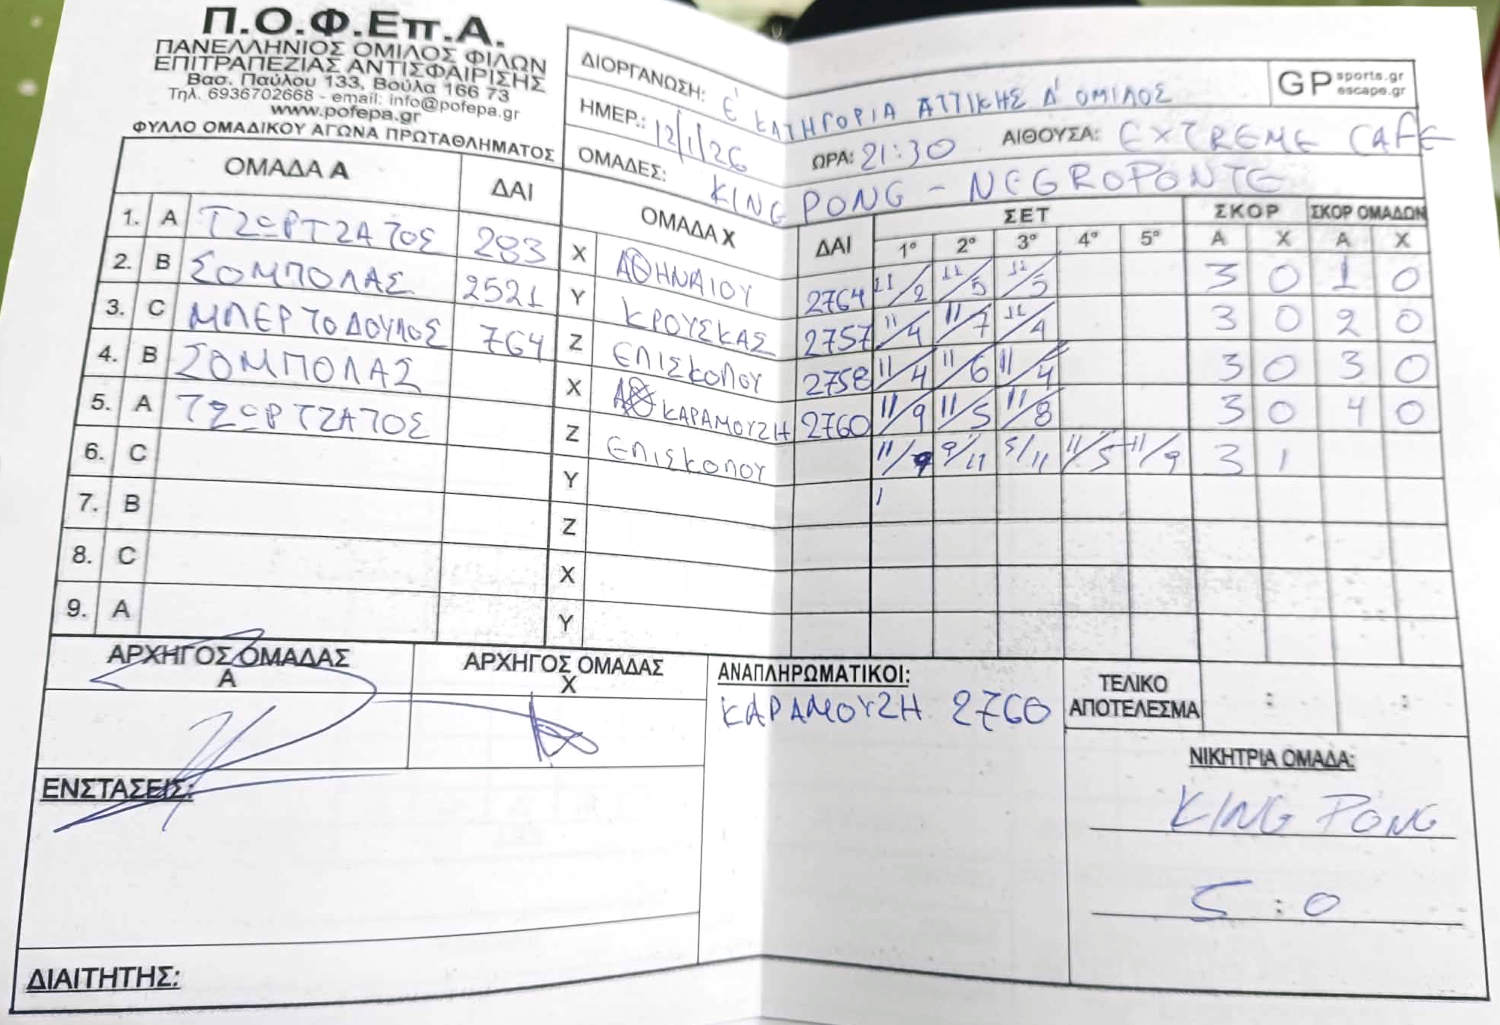 Π.Ο.Φ.Επ.Α.
ΠΑΝΕΛΛΗΝΙΟΣ ΟΜΙΛΟΣ ΦΙΛΩΝ
ΕΠΙΤΡΑΠΕΖΙΑΣ ΑΝΤΙΣΦΑΙΡΙΣΗΣ
Βασ. Παύλου 133, Βούλα 166 73
Τηλ. 6936702668 - email: info@pofepa.gr
www.pofepa.gr
ΦΥΛΛΟ ΟΜΑΔΙΚΟΥ ΑΓΩΝΑ ΠΡΩΤΑΘΛΗΜΑΤΟΣ
ΔΙΟΡΓΑΝΩΣΗ: Ε' ΚΑΤΗΓΟΡΙΑ ΑΤΤΙΚΗΣ Δ' ΟΜΙΛΟΣ
GP sports.gr escape.gr
ΗΜΕΡ.: 12/1/26 ΩΡΑ: 21:30 ΑΙΘΟΥΣΑ: EXTREME CAFE
ΟΜΑΔΕΣ: KING PONG - NEGROPONTE
ΟΜΑΔΑ Α ΔΑΙ ΟΜΑΔΑ Χ ΔΑΙ ΣΕΤ ΣΚΟΡ ΣΚΟΡ ΟΜΑΔΩΝ
1º 2º 3º 4º 5º Α Χ Α Χ
1. A ΤΖΩΡΤΖΑΤΟΣ 283 X ΑΘΗΝΑΙΟΥ 2764 11/2 11/5 11/5 3 0 1 0
2. B ΣΟΜΠΟΛΑΣ 2521 Y ΚΡΟΥΣΚΑΣ 2757 11/4 11/7 11/4 3 0 2 0
3. C ΜΠΕΡΤΟΔΟΥΛΟΣ 764 Z ΕΠΙΣΚΟΠΟΥ 2758 11/4 11/6 11/4 3 0 3 0
4. B ΣΟΜΠΟΛΑΣ X ΚΑΡΑΜΟΥΖΗ 2760 11/9 11/5 11/8 3 0 4 0
5. A ΤΖΩΡΤΖΑΤΟΣ Z ΕΠΙΣΚΟΠΟΥ 11/9 9/11 5/11 11/5 11/9 3 1
6. C Y
7. B Z
8. C X
9. A Y
ΑΡΧΗΓΟΣ ΟΜΑΔΑΣ Α
ΑΡΧΗΓΟΣ ΟΜΑΔΑΣ Χ
ΑΝΑΠΛΗΡΩΜΑΤΙΚΟΙ:
ΚΑΡΑΜΟΥΖΗ 2760
ΤΕΛΙΚΟ ΑΠΟΤΕΛΕΣΜΑ : :
ΝΙΚΗΤΡΙΑ ΟΜΑΔΑ:
KING PONG
5 : 0
ΕΝΣΤΑΣΕΙΣ:
ΔΙΑΙΤΗΤΗΣ: